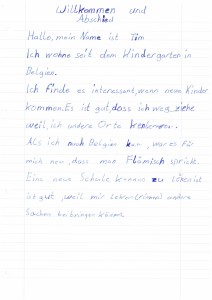 Willkommen und
Abschied
Hallo, mein Name ist Tim
Ich wohne seit dem Kindergarten in
Belgien.
Ich finde es interessant, wenn neue Kinder
kommen. Es ist gut, dass ich weg ziehe
weil, ich andere Orte
Als ich nach Belgien kam, war es für
mich neu, dass man Flämisch spricht.
Eine neue Schule kennen zu lernen ist
ist gut, weil mir Lehrer(rinnen) andere
Sachen beibringen können.